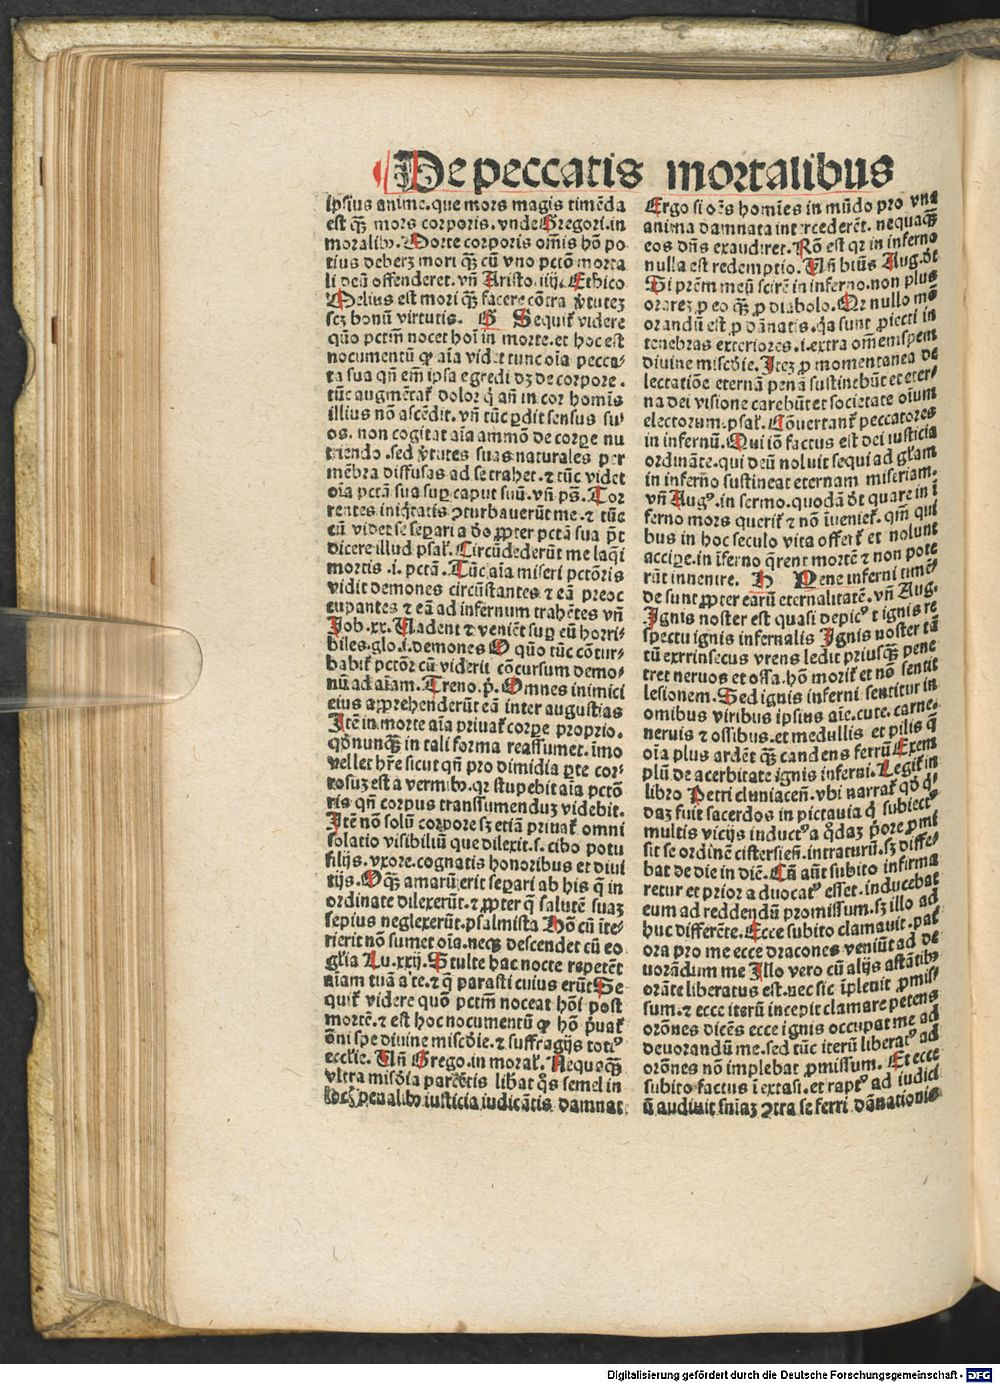 De peccatis mortalibus
ipsius anime. que mors magis timēda
est q̄ȝ mors corporis. vnde Gregori. in
moralibꝰ. Morte corporis om̄is hō po
tius deberȝ mori q̄ȝ cū vno pctō morta
li deū offenderet. vn̄ Aristo. iiij. Ethico
Melius est mori q̄ȝ facere cōtra v̓tuteȝ
scȝ bonū virtutis. G Sequit᷑ videre
quō pctm̄ nocet hoī in morte. et hoc est
nocumentū ꝙ aīa videt tunc oīa pecca⸗
ta sua qn̄ em̄ ipsa egredi dȝ de corpore.
tūc augmētat᷑ dolor q̓ an̄ in cor homīs
illius nō ascēdit. vn̄ tūc ꝑdit sensus su⸗
os. non cogitat aīa ammō de corpe nu
triendo. sed v̓tutes suas naturales per
mēbra diffusas ad se trahet. ⁊ tūc videt
oīa pctā sua suꝑ caput suū. vn̄ ps̄. Tor
rentes iniq̄tatis ꝯturbauerūt me. ⁊ tūc
cū videt se separi a deo ꝓpter pctā sua p̄t
dicere illud psal᷑. Circūdederūt me laq̄i
mortis .i. pctā. Tūc aīa miseri pctōris
vidit demones circūstantes ⁊ eā preoc
cupantes ⁊ eā ad infernum trahētes vn̄
Job. xx. Uadent ⁊ veniēt suꝑ eū horri⸗
biles. glo. i. demones O quō tūc cōtur⸗
babit᷑ pctōr cū viderit cōcursum demo⸗
nū ad aīam. Treno. p̓. Omnes inimici
eius apprehenderūt eā inter augustias
Itē in morte aīa priuat᷑ corpe proprio.
qd̄ nunq̄ȝ in tali forma reassumet. īmo
vellet hr̄e sicut qn̄ pro dimidia ꝑte cor⸗
rosuȝ est a vermibꝰ. qr stupebit aīa pctō
ris qn̄ corpus transsumenduȝ videbit.
Itē nō solū corpore sȝ etiā priuat᷑ omni
solatio visibiliū que dilexit. s. cibo potu
filijs. vxore. cognatis honoribus et diui
tijs. O q̄ȝ amarū erit separi ab his q̄ in
ordinate dilexerūt. ⁊ ꝓpter q̄ salutē suaȝ
sepius neglexerūt. psalmista Hō cū īte⸗
rierit nō sumet oīa. neqȝ descendet cū eo
gl̄ia Lu. xxij. Stulte hac nocte repetēt
aīam tuā a te. ⁊ q̄ parasti cuius erūt Se
quit᷑ videre quō pctm̄ noceat hōi post
mortē. ⁊ est hoc nocumentū ꝙ hō p̓uat᷑
ōni spe diuine miscd̄ie. ⁊ suffragijs totiꝰ
eccl̄ie. Un̄ Grego. in moral᷑. Nequaq̄ȝ
vltra misd̄ia parcētis libat q̄s semel in
penalibꝰ iusticia iudicātis damnat
Ergo si oēs homīes in mūdo pro vna
anima damnata intercederēt. nequaq̄ȝ
eos dn̄s exaudiret. Rō est qr in inferno
nulla est redemptio. Un̄ btūs Aug. dt̄
Si prēm meū scirē in inferno. non plus
orareȝ ꝓ eo q̄ȝ ꝓ diabolo. Qr nullo mō
orandū est ꝓ dānatis. q̓a sunt ꝓiecti in
tenebras exteriores. i. extra om̄em spem
diuine miscd̄ie. Iteȝ ꝓ momentanea de
lectatiōe eternā penā sustinebūt et eter⸗
na dei visione carebūt et societate oīum
electorum. psal᷑. Cōuertant᷑ peccatores
in infernū. Qui iō factus est dei iusticia
ordināte. qui deū noluit sequi ad gl̄iam
in inferno sustineat eternam miseriam.
vn̄ Augꝰ. in sermo. quodā dt̄ quare in ī
ferno mors querit᷑ ⁊ nō īuenit᷑. qm̄ qui
bus in hoc seculo vita offert᷑ et nolunt
accipe. in īferno q̄rent mortē ⁊ non pote
rūt inuenire. H Pene inferni timē⸗
de sunt ꝓpter earū eternalitatē. vn̄ Aug.
Ignis noster est quasi depicꝰt ignis re
spectu ignis infernalis Ignis noster tā
tū exrrinsecus vrens ledit priusq̄ȝ pene
tret neruos et ossa. hō morit᷑ et nō sentit
lesionem. Sed ignis inferni sentitur in
omibus viribus ipsius aīe. cute. carne.
neruis ⁊ ossibus. et medullis et pilis q̄
oīa plus ardēt q̄ȝ candens ferrū Exem
plū de acerbitate ignis inferni. Legit᷑ in
libro Petri cluniaceñ. vbi narrat᷑ qd̄ q̓⸗
daȝ fuit sacerdos in pictauia q̓ subiectꝰ
multis vicijs inductꝰ a q̓daȝ p̓ore ꝓmi
sit se ordinē cistersieñ. intraturū. sȝ diffe⸗
bat de die in diē. Cū aūt subito infirma
retur et prior aduocatꝰ esset. inducebat
eum ad reddendū promissum. sȝ illo ad
huc differēte. Ecce subito clamauit. pat᷑
ora pro me ecce dracones veniūt ad de
uorāndum me Illo vero cū alijs astātibꝰ
orāte liberatus est. nec sic īpleuit ꝓmis⸗
sum. ⁊ ecce iterū incepit clamare petens
orōnes dicēs ecce ignis occupat me ad
deuorandū me. sed tūc iterū liberatꝰ ad
orōnes nō implebat ꝓmissum. Et ecce
subito factus ī extasi. et raptꝰ ad iudici
ū audiuit sniāȝ ꝯtra se ferri dānationis
Digitalisierung gefördert durch die Deutsche Forschungsgemeinschaft - DFG